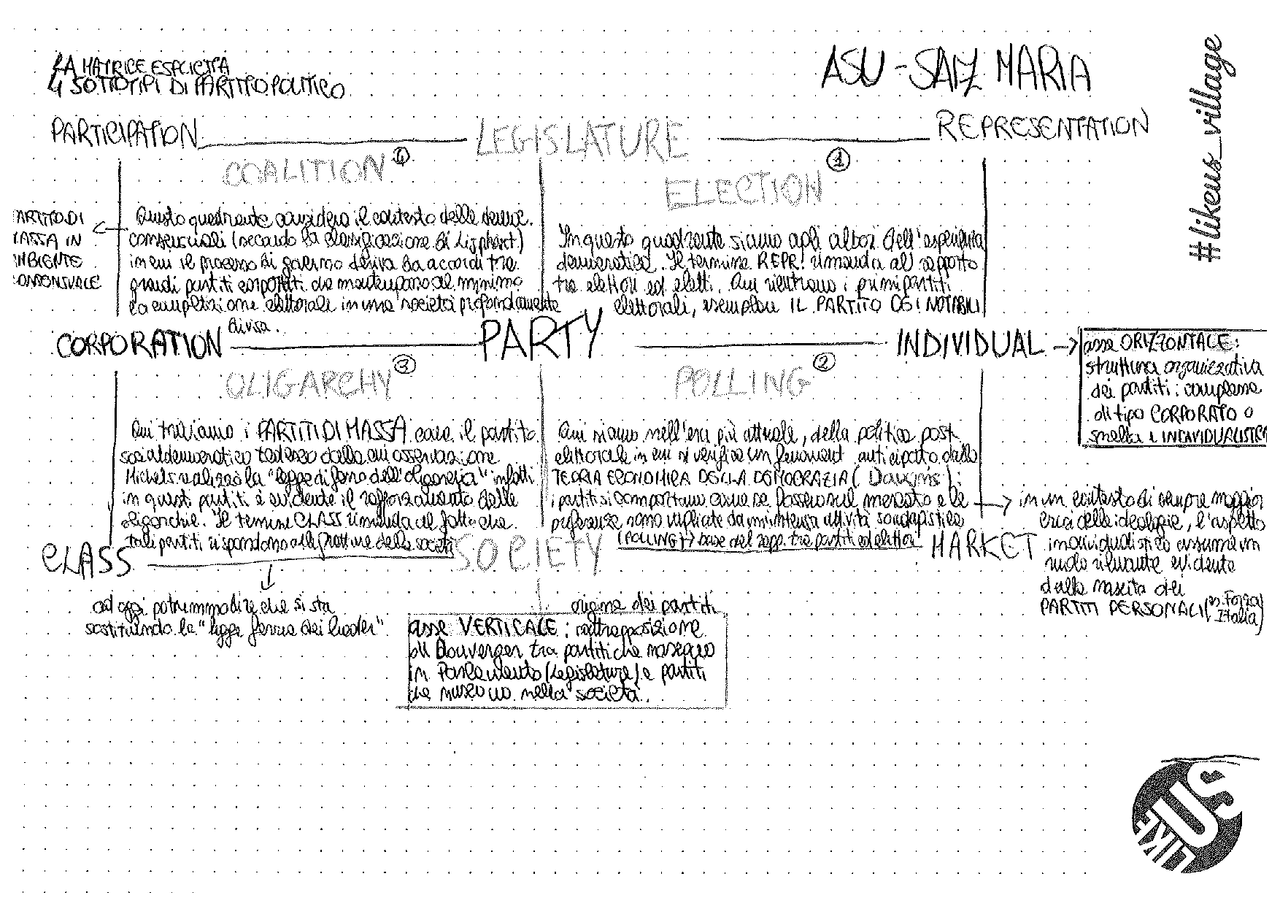 LA MATRICE ESPLICITA
4 SOTTOTIPI DI PARTITO POLITICO
ASU - SAIZ MARIA
#likeus_village
PARTICIPATION
LEGISLATURE
REPRESENTATION
COALITION ④
ELECTION ①
PARTITO DI
MASSA IN
AMBIENTE
CONSENSUALE
Questo quadrante considera il contesto delle democ.
consensuali (secondo la classificazione di Lijphart)
in cui il processo di governo deriva da accordi tra
grandi partiti corporati che mantengano al minimo
la competizione elettorale in una società profondamente
divisa.
In questo quadrante siamo agli albori dell'esperienza
democratica. Il termine REPR. rimanda al rapporto
tra elettori ed eletti. Qui rientrano i primi partiti
elettorali, esemplare IL PARTITO DEI NOTABILI
CORPORATION
PARTY
INDIVIDUAL
asse ORIZZONTALE:
struttura organizzativa
dei partiti: complessa
di tipo CORPORATO o
snella e INDIVIDUALISTICA
OLIGARCHY ③
POLLING ②
Qui troviamo i PARTITI DI MASSA come il partito
socialdemocratico tedesco dalla cui osservazione
Michels realizzò la "legge di ferro dell'oligarchia" infatti
in questi partiti è evidente il rafforzamento delle
oligarchie. Il termine CLASS rimanda al fatto che
tali partiti rispondono alle fratture della società
Qui siamo nell'era più attuale, della politica post
elettorale in cui si verifica un fenomeno anticipato dalla
TEORIA ECONOMICA DELLA DEMOCRAZIA (Downs):
i partiti si comportano come se fossero sul mercato e le
preferenze sono vagliate da un'intensa attività sondaggistica
(POLLING) → base del rapp. tra partiti ed elettori
CLASS
SOCIETY
MARKET
in un contesto di sempre maggior
crisi delle ideologie, l'aspetto
individualistico assume un
ruolo rilevante evidente
dalla nascita dei
PARTITI PERSONALI (es. Forza
Italia)
ad oggi potremmo dire che si sta
sostituendo la "legge ferrea dei leader"
origine dei partiti
asse VERTICALE: contrapposizione
di Douverger tra partiti che nascono
in Parlamento (Legislature) e partiti
che nascono nella società.
LIKE US